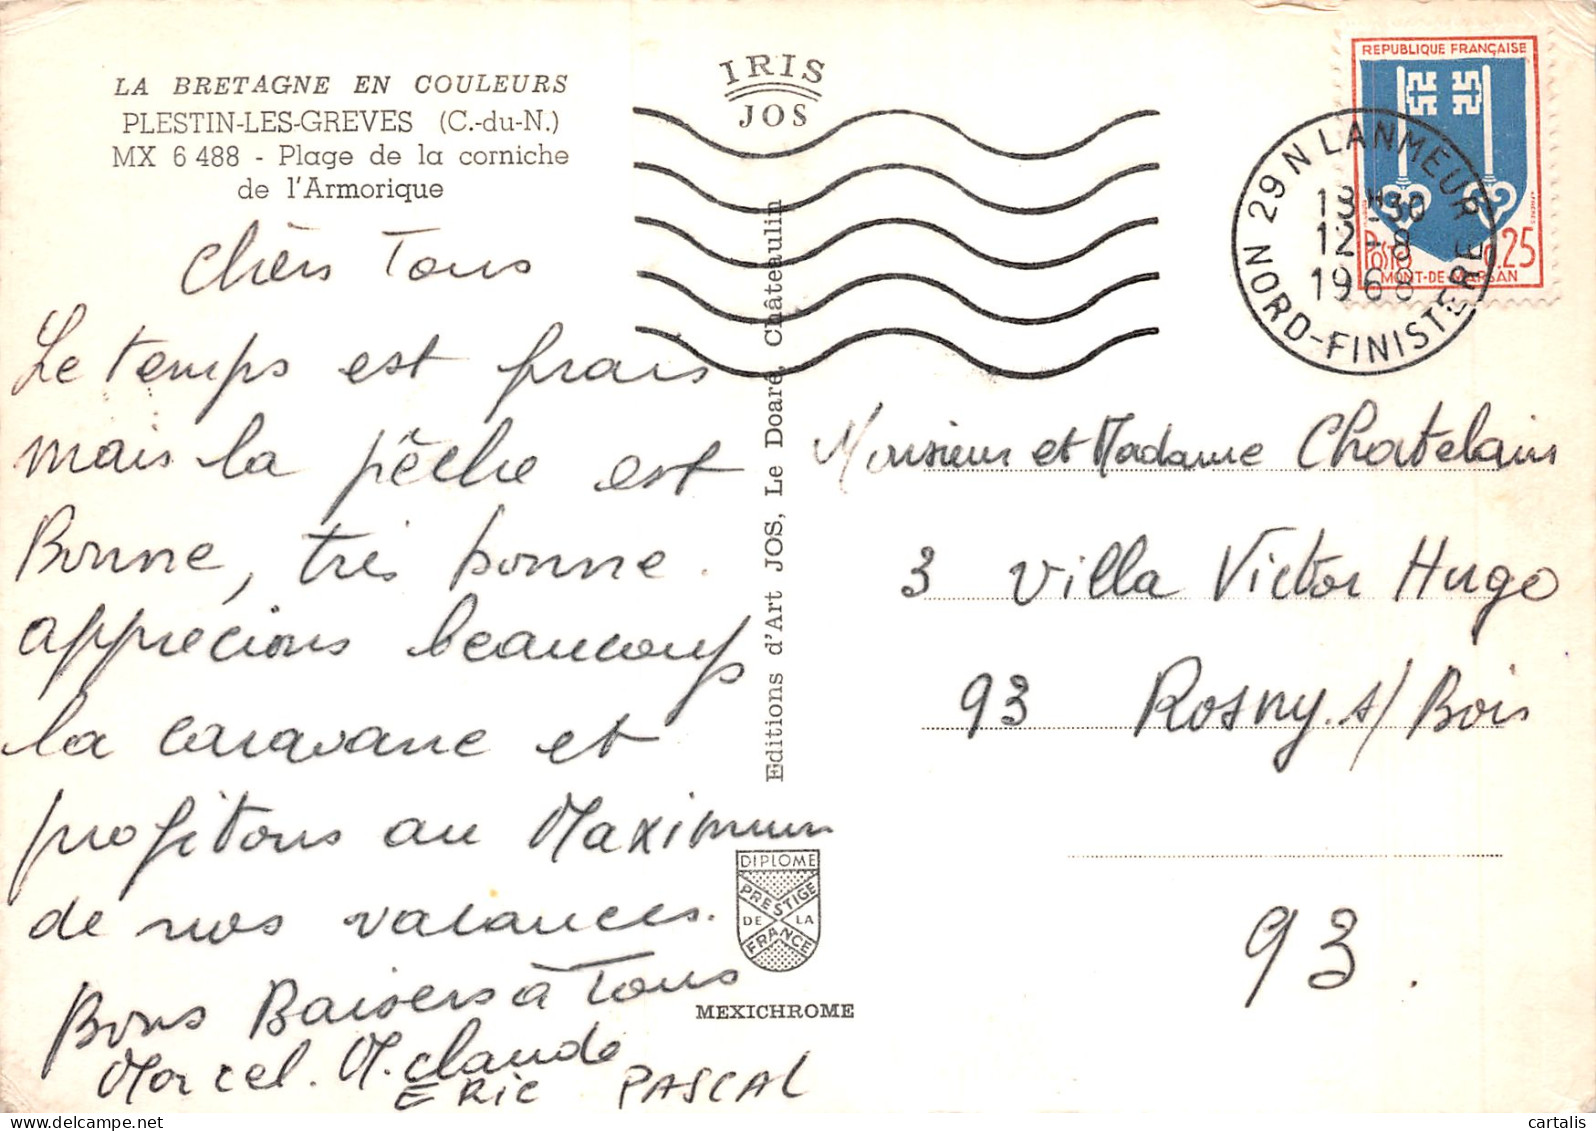 LA BRETAGNE EN COULEURS
PLESTIN-LES-GREVES (C.-du-N.)
MX 6 488 - Plage de la corniche
de l'Armorique
IRIS
JOS
REPUBLIQUE FRANÇAISE
POSTES 0.25
MONT-DE-MARSAN
29 N LANMEUR
13H30
12-8
1968
NORD-FINISTERE
Chers Tous
Le temps est frais
mais la pêche est
Bonne, très bonne.
apprecions beaucoup
la caravane et
profitons au Maximum
de nos vacances.
Bons Baisers à Tous
Marcel. M. Claude
ERIC PASCAL
Editions d'Art JOS, Le Doaré, Châteaulin
DIPLOME
PRESTIGE
DE LA
FRANCE
MEXICHROME
Monsieur et Madame Chatelain
3 Villa Victor Hugo
93 Rosny.s/Bois
93.
cartalis - delcampe.net